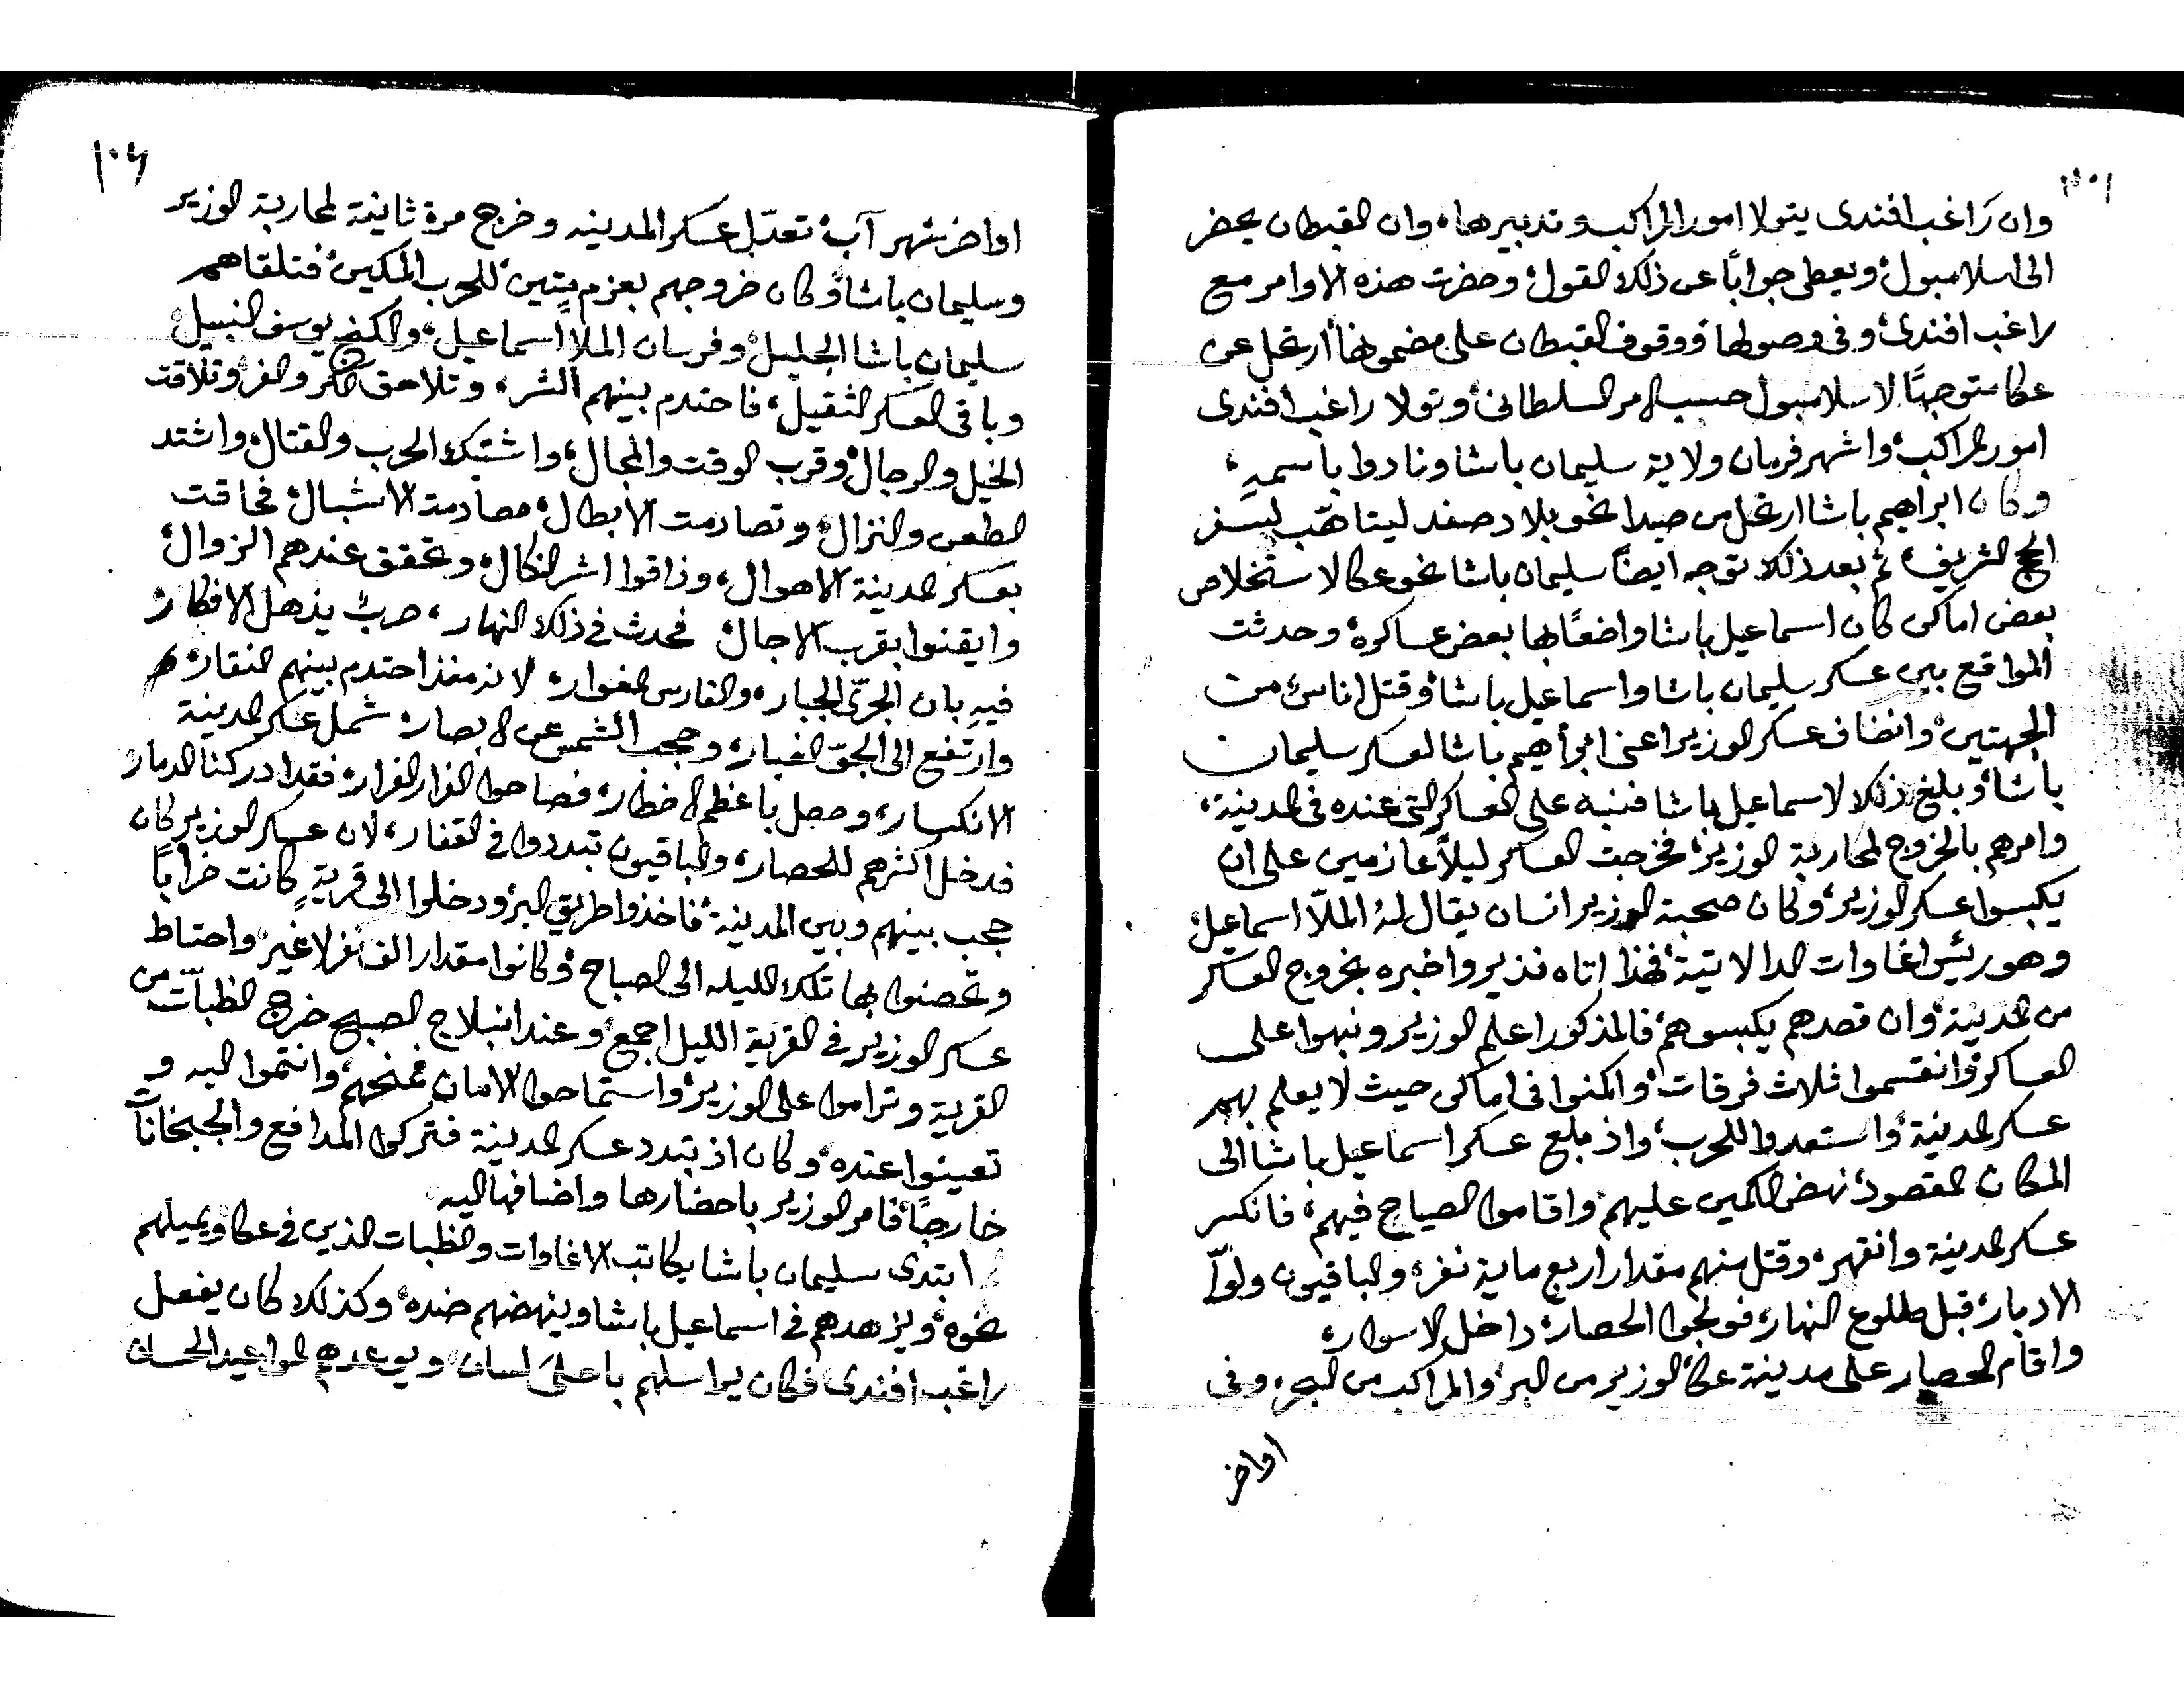 وان راغب افندى يتولا امور المراكب وتدبيرها، وان القبطان يحضر
الى اسلامبول، ويعطى جواباً عن ذلك القول، وحضرت هذه الاوامر مع
راغب افندى، وفى وصولها ووقوف القبطان على مضمونها ارتحل عن
عكا متوجهاً لاسلامبول حسب الامر السلطانى، وتولا راغب افندى
امور المراكب، واشهر فرمان ولاية سليمان باشا ونادوا باسمهِ،
وكان ابراهيم باشا ارتحل من صيدا نحو بلاد صفد ليتاهّب لسفر
الحج الشريف، ثم بعد ذلك توجه ايضاً سليمان باشا نحو عكا لاستخلاص
بعض اماكن كان اسماعيل باشا واضعاً بها بعض عساكره، وحدثت
المواقع بين عسكر سليمان باشا واسماعيل باشا، وقتل اناس من
الجهتين، وانضاف عسكر الوزير اعنى ابراهيم باشا لعسكر سليمان
باشا، وبلغ ذلك لاسماعيل باشا فنبه على العساكر التى عنده فى المدينة،
وامرهم بالخروج لمحاربة الوزير، فخرجت العساكر ليلاً عازمين على ان
يكبسوا عسكر الوزير، وكان صحبة الوزير انسان يقال لهُ الملّا اسماعيل،
وهو رئيس اغاوات الدالاتية، فهذا اتاه نذير واخبره بخروج العساكر
من المدينة، وان قصدهم يكبسوهم، فالمذكور اعلم الوزير ونبهوا على
العساكر، وانقسموا ثلاث فرقات، واكمنوا فى اماكن حيث لا يعلم بهم
عسكر المدينة، واستعدوا للحرب، واذ بلغ عسكر اسماعيل باشا الى
المكان المقصود، نهض الكمين عليهم، واقاموا الصياح فيهم، فانكسر
عسكر المدينة وانقهر، وقتل منهم مقدار اربع ماية نفر، والباقيون ولوّا
الادبار، قبل طلوع النهار، فولجوا الحصار، داخل الاسوار،
واقام الحصار على مدينة عكا، الوزير من البر، والمراكب من البحر، وفى
اواخر
١٠٦
اواخر شهر آب، تعدّل عسكر المدينه وخرج مرة ثانية لمحاربة الوزير
وسليمان باشا، وكان خروجهم بعزم متين، للحرب المكين، فتلقاهم
سليمان باشا الجليل، وفرسان الملا اسماعيل، والكنج يوسف النبيل،
وباقى العسكر الثقيل، فاحتدم بينهم الشر، وتلاحق الكر والفر، وتلاقت
الخيل والرجال، وقرب الوقت والمجال، واشتبك الحرب والقتال، واشتد
الطعن والنزال، وتصادمت الابطال، مصادمت الاشبال، فحاقت
بعسكر المدينة الاهوال، وذاقوا اشر النكال، وتحقق عندهم الزوال،
وايقنوا بقرب الاجال، فحدث فى ذلك النهار، حربٌ يذهل الافكار،
فيهِ بان الجرىّ الجبار، والفارس المغوار، لانه منذ احتدم بينهم النقار،
وارتفع الى الجوّ الغبار، وحجب الشمس عن الابصار، شمل عسكر المدينة
الانكسار، وحصل باعظم الاخطار، فصاحوا الفرار الفرار، فقد ادركنا الدمار،
فدخل اكثرهم للحصار، والباقيون تبددوا فى القفار، لان عسكر الوزير كان
حجب بينهم وبين المدينة، فاخذوا طريق البر، ودخلوا الى قريةٍ كانت خراباً
وتحصنوا بها تلك الليله الى الصباح، وكانوا مقدار الف نفر لا غير، واحتاط
عسكر الوزير فى القرية الليل اجمع، وعند انبلاج الصبح خرج الظبات من
القرية وتراموا على الوزير، واستماحوا الامان، فمنحهم، وانتموا اليه و
تعينوا عنده، وكان اذ تبدد عسكر المدينة فتركوا المدافع والجبخانات
خارجاً، فامر الوزير باحضارها واضافها اليه
ابتدى سليمان باشا يكاتب الاغاوات والظبات الذين فى عكا ويميلهم
نحوه، ويزهدهم فى اسماعيل باشا وينهضهم ضده، وكذلك كان يفعل
راغب افندى فكان يراسلهم باحلى لسان، ويوعدهم المواعيد الحسان